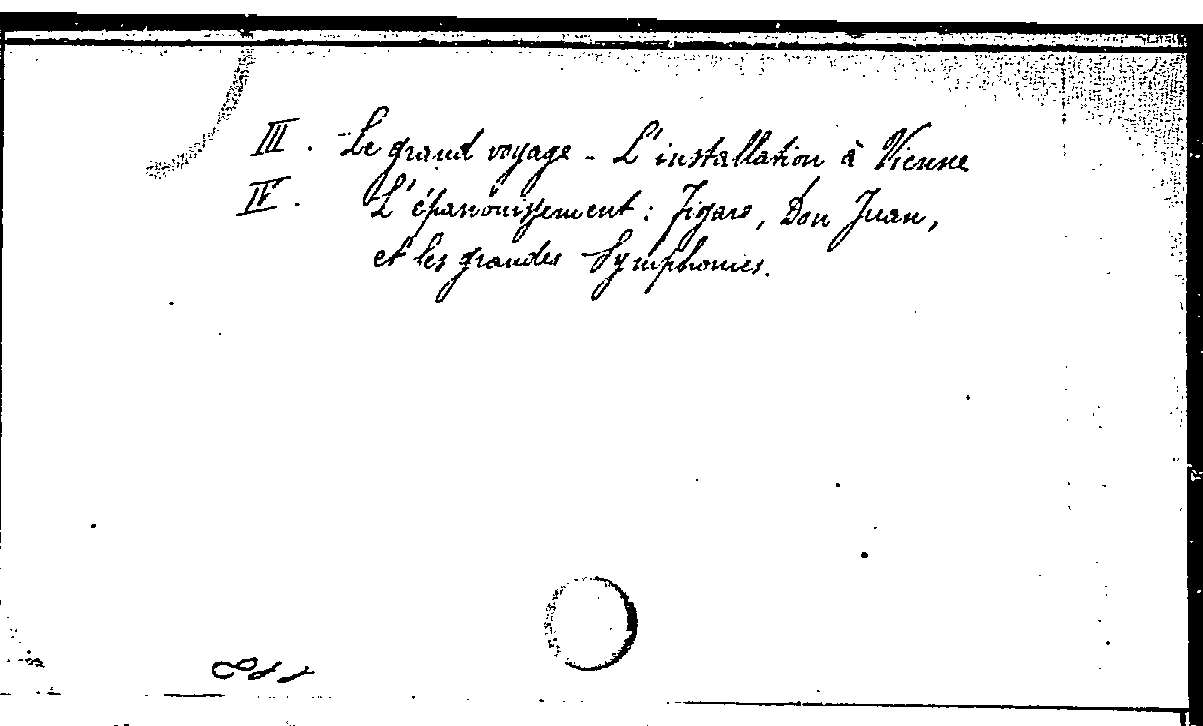 III. Le grand voyage - L'installation à Vienne
IV. L'épanouissement : Figaro, Don Juan,
et les grandes Symphonies.